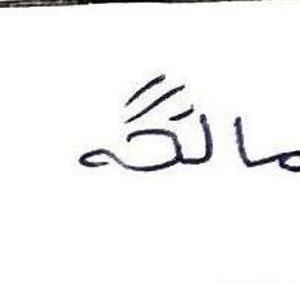 مالگه